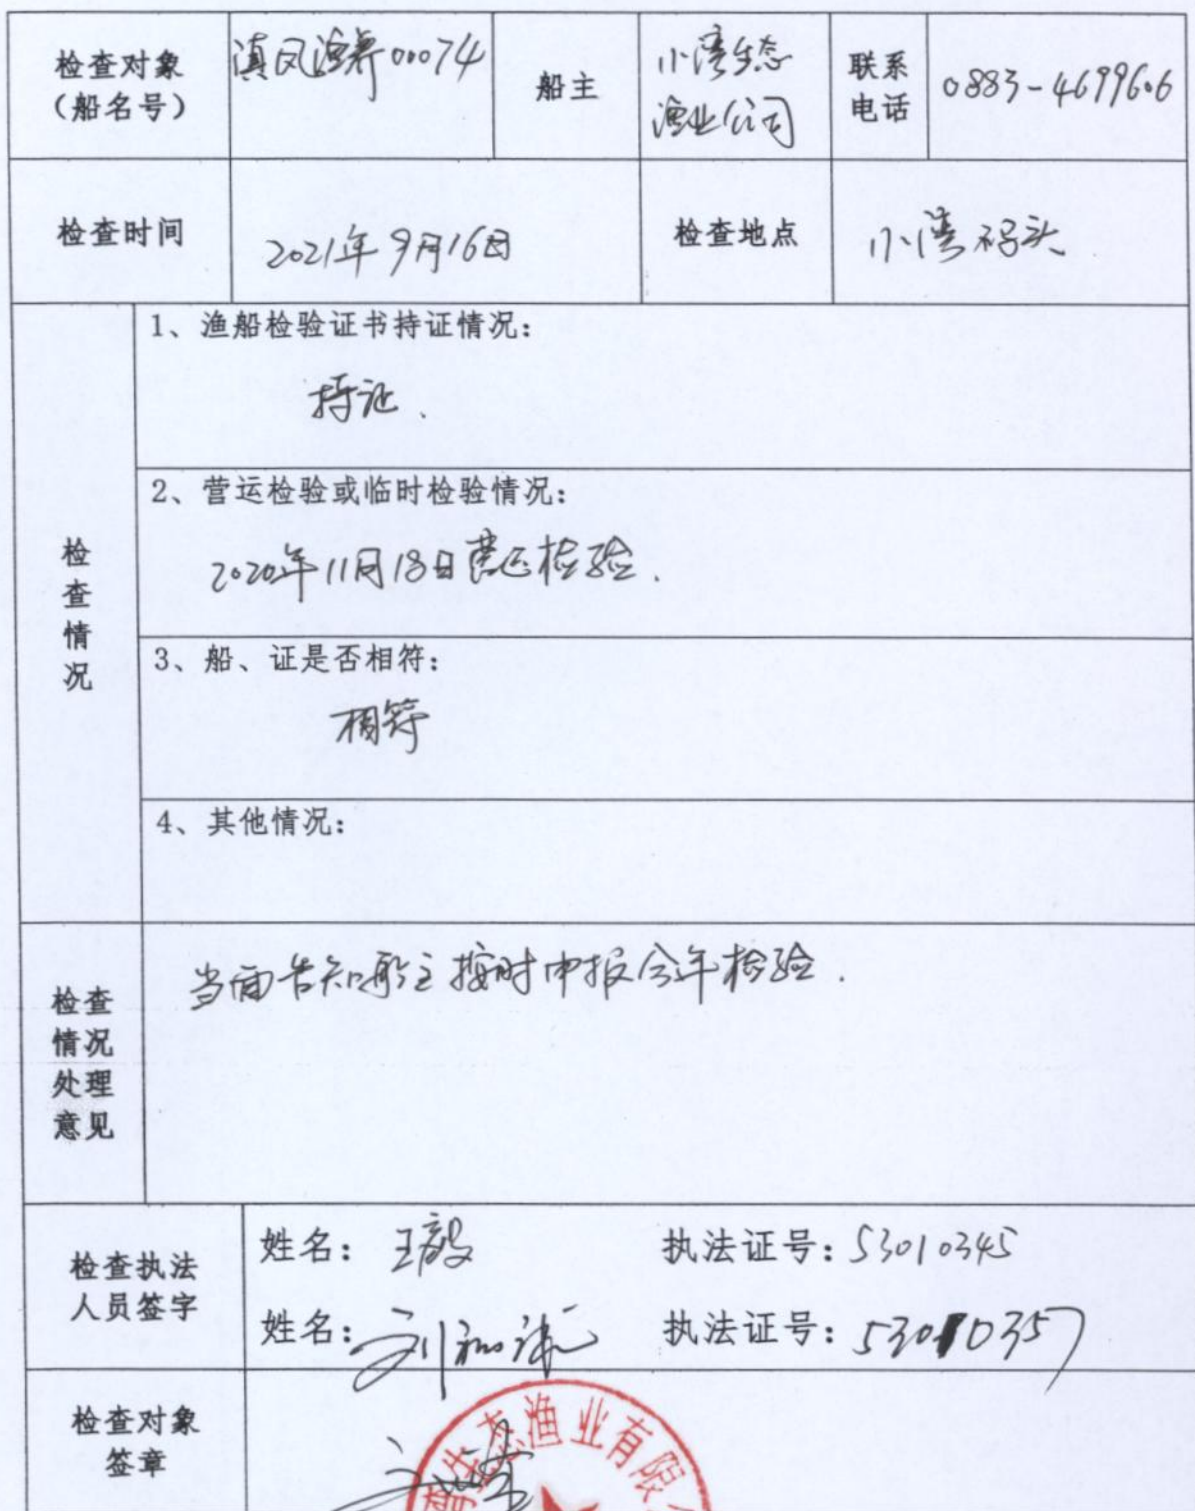 检查对象
（船名号）
滇凤渔养00074
船主
小湾生态
渔业公司
联系
电话
0883-4699606
检查时间
2021年9月16日
检查地点
小湾码头
检查情况
1、渔船检验证书持证情况：
持证、
2、营运检验或临时检验情况：
2020年11月18日营运检验.
3、船、证是否相符：
相符
4、其他情况：
检查
情况
处理
意见
当面告知船主按时申报今年检验.
检查执法
人员签字
姓名：王毅
执法证号：53010345
姓名：刘
执法证号：53010357
检查对象
签章
湾生态渔业有限